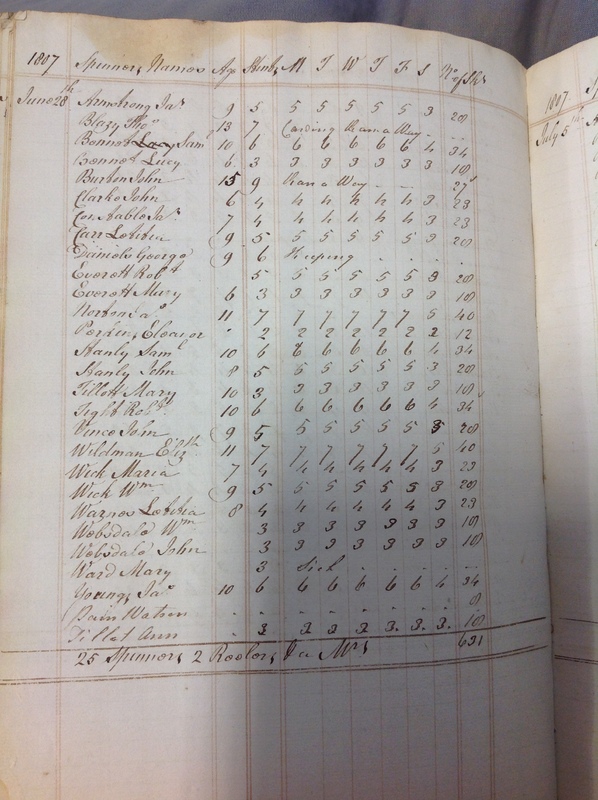 1807 Spinners Names Age Stint M T W T F S No of Sks
June 28th Armstrong Jas 9 5 5 5 5 5 5 3 28
Blazy Thos 13 7 Carding Ran a Way
Bonnet Lucy Saml 10 6 6 6 6 6 6 4 34
Bonnet Lucy 6 3 3 3 3 3 3 3 18
Burton John 15 9 Ran a Way 27
Clarke John 6 4 4 4 4 4 4 3 23
Constable Jas 7 4 4 4 4 4 4 3 23
Carr Letitia 9 5 5 5 5 5 5 3 28
Daniels George 9 6 Keeping
Everett Robt 5 5 5 5 5 5 3 28
Everett Mary 6 3 3 3 3 3 3 3 18
Norton Jas 11 7 7 7 7 7 7 5 40
Eleanor 2 2 2 2 2 2 2 12
Stanly Saml 10 6 6 6 6 6 6 4 34
Stanly John 8 5 5 5 5 5 5 3 28
Tillott Mary 10 3 3 3 3 3 3 3 18
Tight Robt 10 6 6 6 6 6 6 4 34
Vince John 9 5 5 5 5 5 5 3 28
Wildman Elizth 11 7 7 7 7 7 7 5 40
Wick Maria 7 4 4 4 4 4 4 3 23
Wick Wm 9 5 5 5 5 5 5 3 28
Warnes Letitia 8 4 4 4 4 4 4 3 23
Websdale Wm 3 3 3 3 3 3 3 18
Websdale John 3 3 3 3 3 3 3 18
Ward Mary 3 Sick
Youngs Jas 10 6 6 6 6 6 6 4 34
Pain Watson 8
Tillet Ann 3 3 3 3 3 3 3 18
25 Spinners 2 Reelers 631
1807 Sp
July 5th A
B